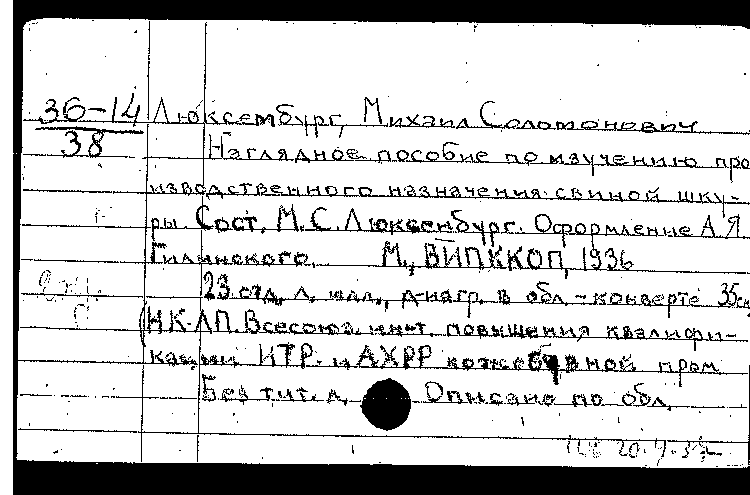 36-14
38
Люксембург, Михаил Соломонович
Наглядное пособие по изучению про
изводственного назначения свиной шку-
ры. Сост. М. С. Люксенбург. Оформление А.Я.
Гилинского. М., ВИПККОП, 1936
23 отд. л. илл., диагр. в обл.-конверте 35см
(НК-ЛП. Всесоюз. инт. повышения квалифи-
кации ИТР. и АХРР кожев ной пром
Без тит. л. Описано по обл.